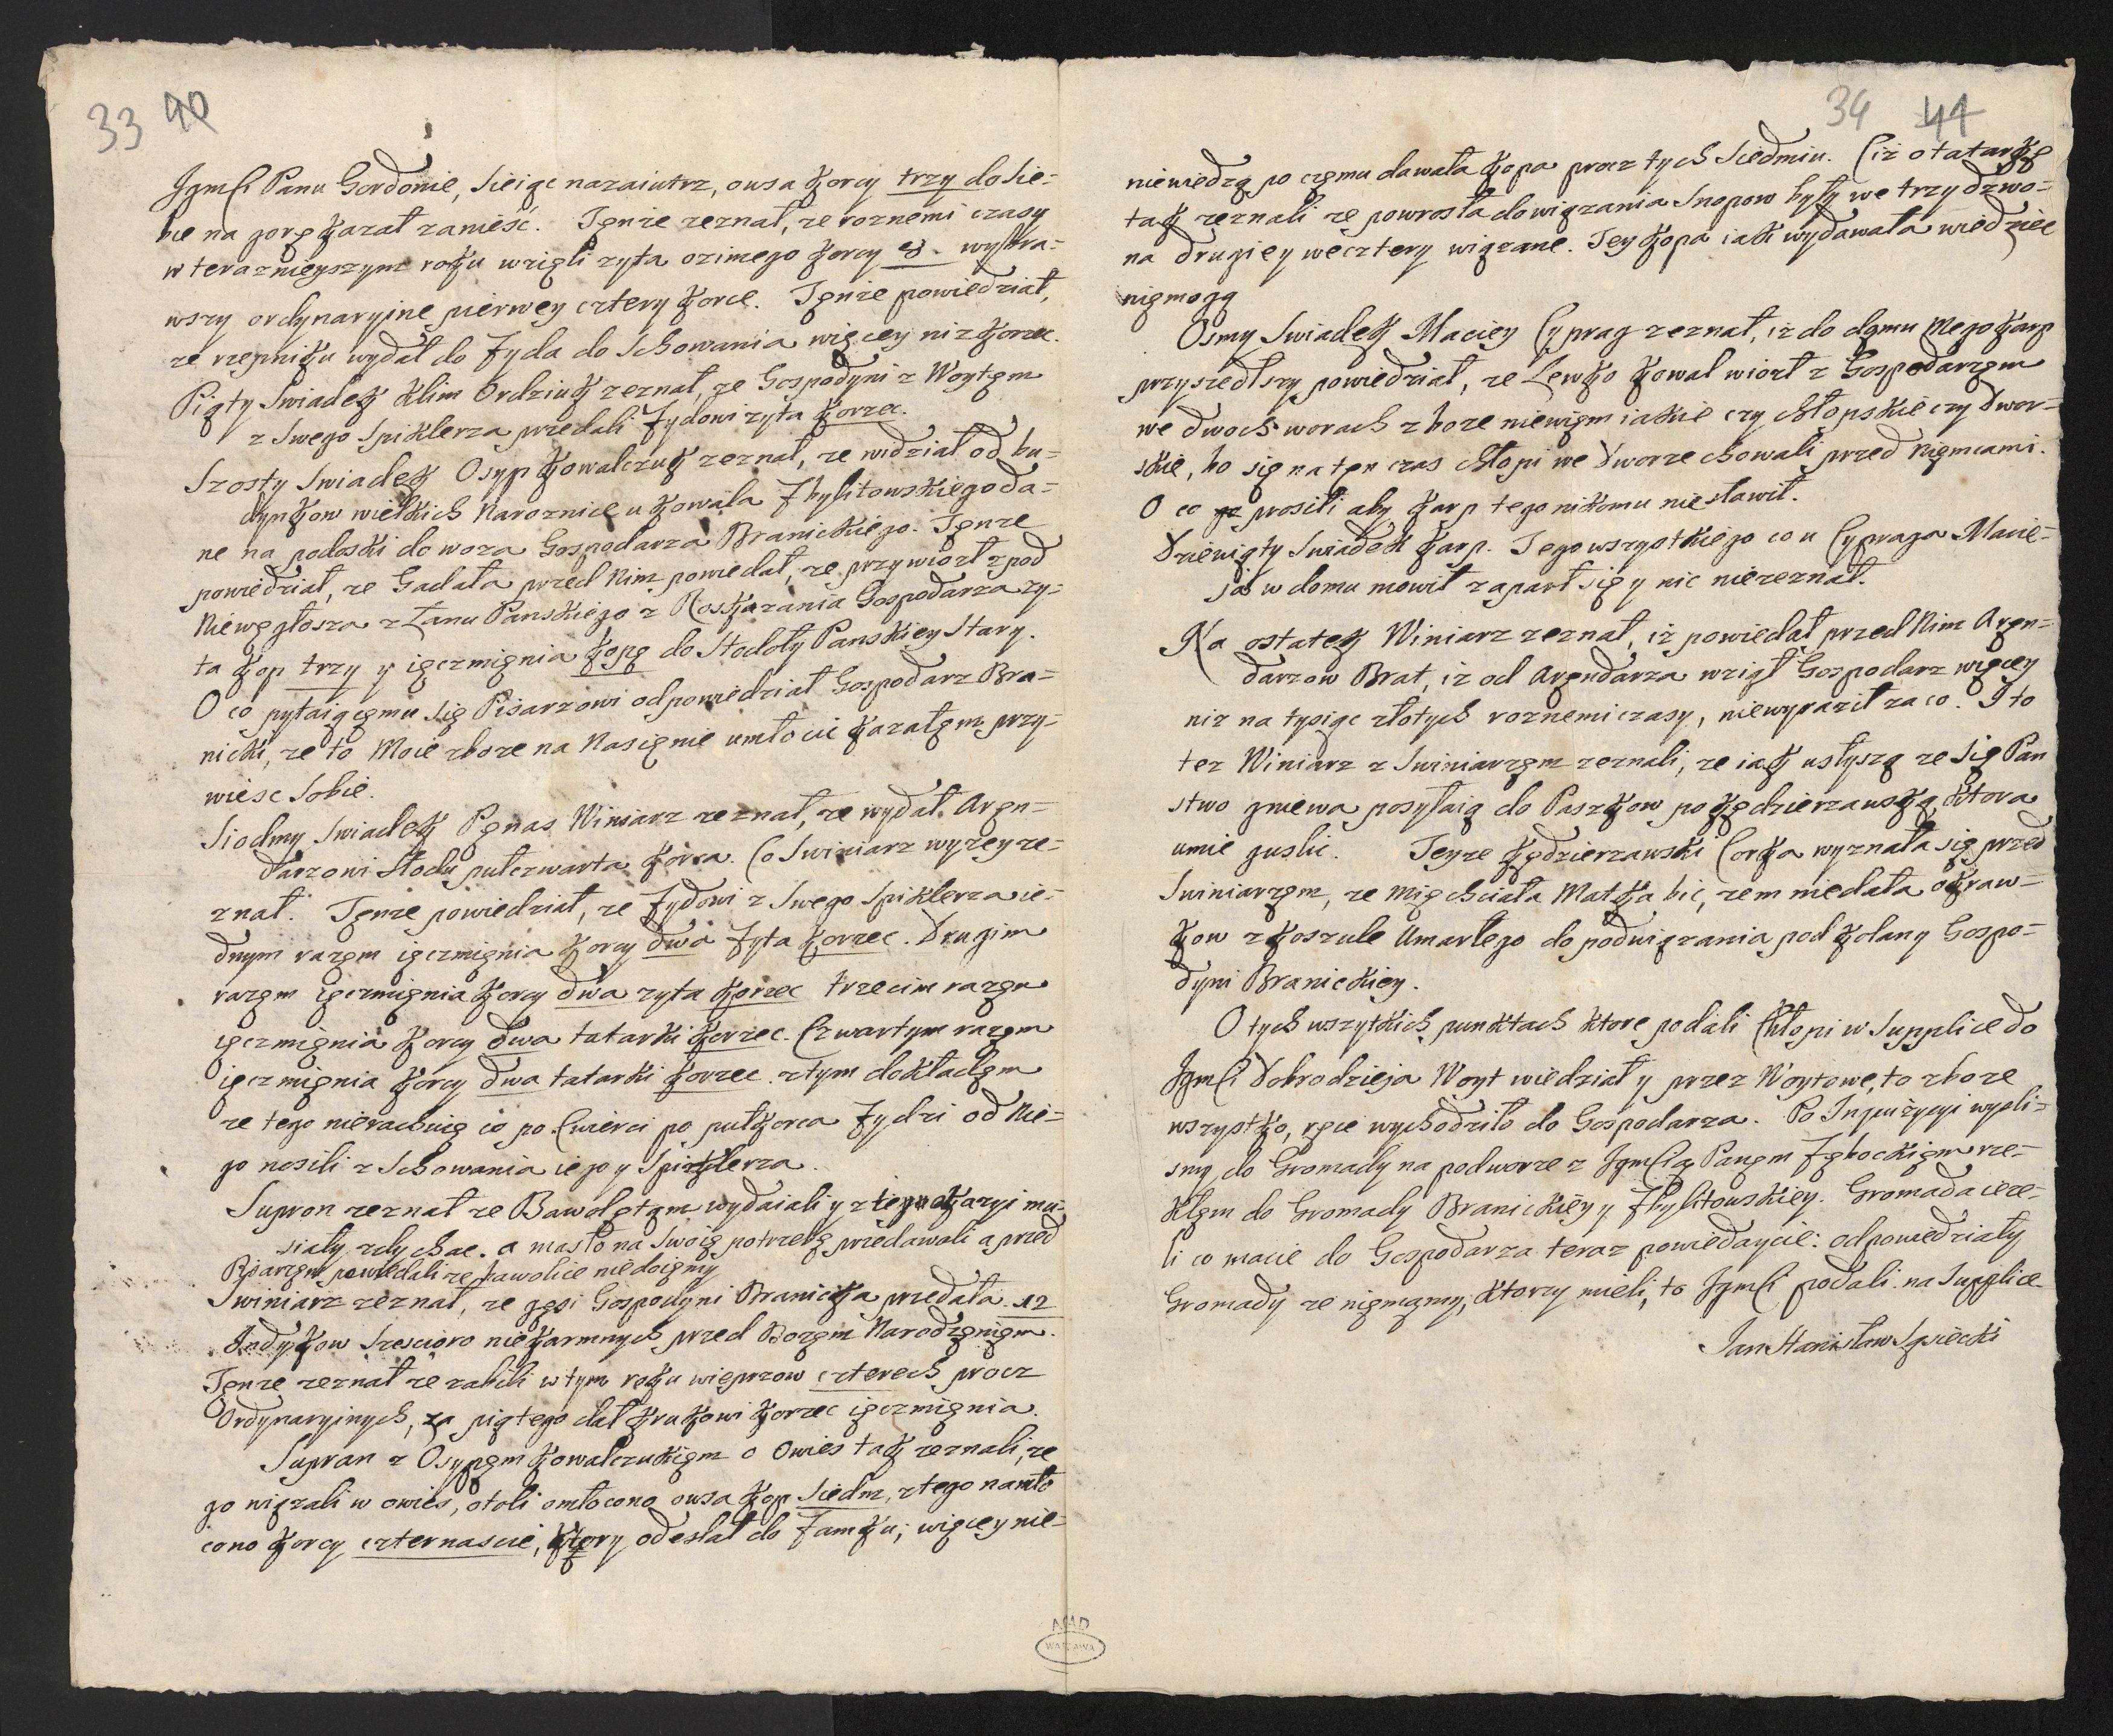 33 40
JgmCi Panu Gordonie, Sieiąc nazaiutrz, owsa korcy trzy do Sie-
bie na gorę kazał zanieść. Tęnże zeznał, że roznemi czasy
w teraznieyszym roku wzięli zyta ozimego korcy 8. wybra-
wszy ordynaryine pierwey cztery korce. Tęnże powiedział,
ze rzepniku wydał do Zyda do Schowania więcey niz korzec.
Piąty Swiadek Klim Ordziuk zeznał, ze Gospodyni z Woytęm
z Swego Spiklerza przedali Zydowi zyta korzec.
Szosty Swiadek Osyp Kowalczuk zeznał, ze widział od bu-
dynkow wielkich Naroznice u kowala Zbylitowskiego da-
ne na podoski do woza Gospodarza Branickiego. Tęnze
powiedział, ze Gadała przed Nim powiedał, ze przywiozł z pod
Niewęgłosza z Łanu Panskiego z Roskazania Gospodarza zy-
ta kop trzy y ięczmięnia kopę do Stodoły Panskiey Stary.
O co pytaiącęmu się Pisarzowi odpowiedział Gospodarz Bra-
nicki, ze to Moie zboze na Nasięnie umłocić kazałęm przy-
wiesc Sobie.
Siodmy Swiadek Pęnas Winiarz zeznał, ze wydał Aręn-
darzowi Słodu pułczwarta korca. Co Swiniarz wyzey ze-
znał. Tęnze powiedział, ze Zydowi z Swego Spiklerza ie-
dnym razęm ięczmięnia korcy dwa Zyta korzec. Drugim
razęm ięczmięnia korcy dwa zyta korzec trzecim razęm
ięczmięnia korcy dwa tatarki korzec. Czwartym razęm
ięczmięnia korcy dwa tatarki korzec. z tym dokładęm
ze tego nierachuię co po Cwierci po pułkorca Zydzi od Nie-
go nosili z Schowania iego y Spiklerza.
Supron zeznał ze Bawolętąm wydaiali y z tey okazyi mu-
siały zdychac. a masło na Swoią potrzebę przedawali a przed
Pisarzęm powiedali ze bawolice niedoięmy
Swiniarz zeznał, ze gęsi Gospodyni Branicka przedała 12
Indykow Szescioro niekarmnych przed Bozęm Narodzęnięm.
Tęnze zeznał ze zabili w tym roku wieprzow czterech procz
Ordynaryinych, za piątego dał krukowi korzec ięczmięnia.
Supran z Osypęm Kowalczukięm o owies tak zeznali, ze
go wiązali w owies, otoli omłocono owsa kop Siedm, z tego namło
cono korcy czternascie, ktory odesłał do Zamku; więcey nie-
34 41
niewiedzą po częmu dawała kopa procz tych Siedmiu. Ciz o tatarkę
tak zeznali ze powrosła dowiązania Snopow były we trzy dzwo-
na drugiey wecztery wiązane. Tey kopa iak wydawała wiedziec
nięmogą
Osmy Swiadek Maciey Cyprag zeznał, iz do dęmu Mego Karp
przyszedłszy powiedział, ze Lewko kowal wiozł z Gospodarzęm
we dwoch worach zboze niewięm iakie czy chłopskie czy Dwor-
skie, bo się na tęn czas chłopi we Dworze chowali przed Nięmcami.
O co prosili aby Karp tego nikomu niesławił.
Dziewiąty Swiadek Karp. Tego wszystkiego co u Cypraga Macie-
ja w domu mowił zaparł się y nic niezeznał.
Na ostatek Winiarz zeznał, iz powiedał przed Nim Aręn-
darzow Brat, iz od Aręndarza wziął Gospodarz więcey
niz na tysiąc złotych roznemi czasy, niewyraził za co. I to
tez Winiarz z Swiniarzęm zeznali, ze iak usłyszą ze Się Pan
stwo gniewa posyłaią do Paszkow po Kędzierzawską, ktora
umie guslic. Teyze Kędzierzawski Corka wyznała się przed
Swiniarzęm, ze mię chciała Matka bic, zem niedała okraw-
kow z koszule Umarłego do podwiązania pod kolany Gospo-
dyni Branickiey.
O tych wszytkich punktach ktore podali Chłopi w Supplice do
JgmCi Dobrodzieja Woyt wiedział y przez Woytowe, to zboze
wszystko, ręce wychodziło do Gospodarza. Po Inquizycyi wyszli-
smy do Gromady na podworze z JgmCią Panęm Zębockięm rze-
kłęm do Gromady Branickiey y Zbylitowskiey. Gromada ieze-
li co macie do Gospodarza teraz powiedaycie: odpowiedziały
Gromady ze nięmamy, ktorzy mieli, to JgmCi podali na Supplice
Jan Stanisław Sąsiecki
AGAD
WARSZAWA